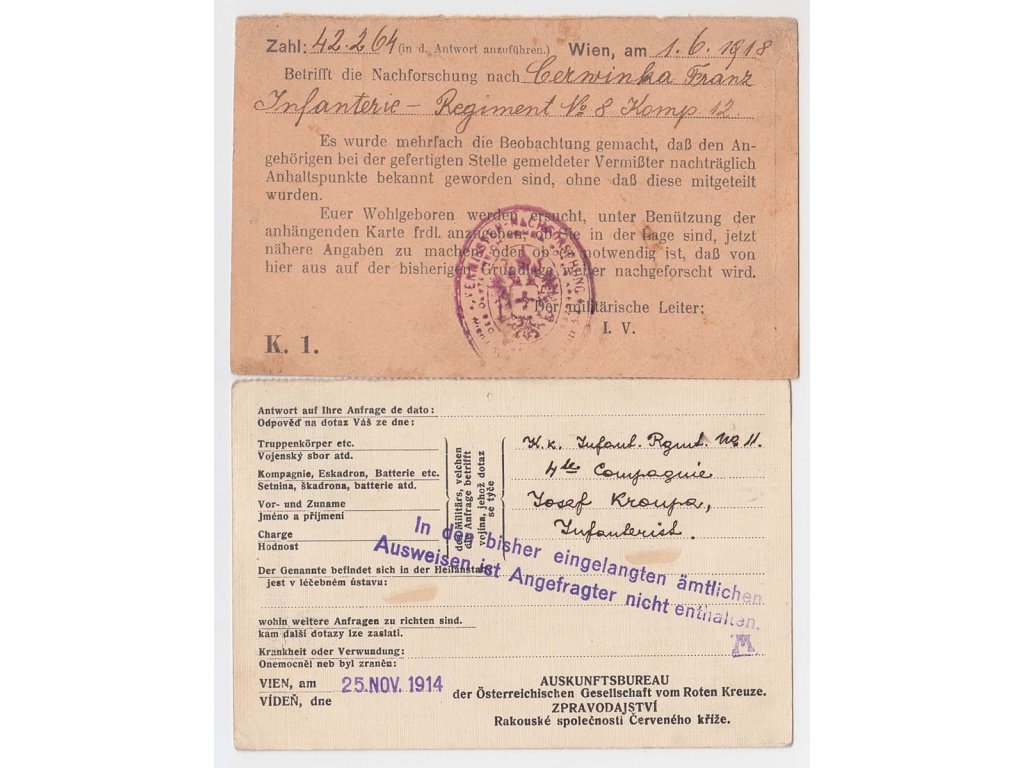 Zahl: 42.264 (in d. Antwort anzuführen.) Wien, am 1.6.1918
Betrifft die Nachforschung nach Cerwinka Franz
Infanterie - Regiment No 8 Komp 12
Es wurde mehrfach die Beobachtung gemacht, daß den An-
gehörigen bei der gefertigten Stelle gemeldeter Vermißter nachträglich
Anhaltspunkte bekannt geworden sind, ohne daß diese mitgeteilt
wurden.
Euer Wohlgeboren werden ersucht, unter Benützung der
anhängenden Karte frdl. anzugeben, ob Sie in der Lage sind, jetzt
nähere Angaben zu machen oder ob es notwendig ist, daß von
hier aus auf der bisherigen Grundlage weiter nachgeforscht wird.
Der militärische Leiter:
I. V.
K. 1.
Antwort auf Ihre Anfrage de dato:
Odpověď na dotaz Váš ze dne:
Truppenkörper etc.
Vojenský sbor atd.
Kompagnie, Eskadron, Batterie etc.
Setnina, škadrona, batterie atd.
Vor- und Zuname
Jméno a příjmení
Charge
Hodnost
des Militärs, welchen
die Anfrage betrifft
vojína, jehož dotaz
se týče
K.k. Infant. Rgmt. No 11.
4te Compagnie
Josef Kroupa,
Infanterist.
In den bisher eingelangten ämtlichen
Ausweisen ist Angefragter nicht enthalten.
Der Genannte befindet sich in der Heilanstalt:
jest v léčebném ústavu:
wohin weitere Anfragen zu richten sind.
kam další dotazy lze zaslati.
Krankheit oder Verwundung:
Onemocněl neb byl zraněn:
VIEN, am 25. NOV. 1914
VÍDEŇ, dne
AUSKUNFTSBUREAU
der Österreichischen Gesellschaft vom Roten Kreuze.
ZPRAVODAJSTVÍ
Rakouské společnosti Červeného kříže.